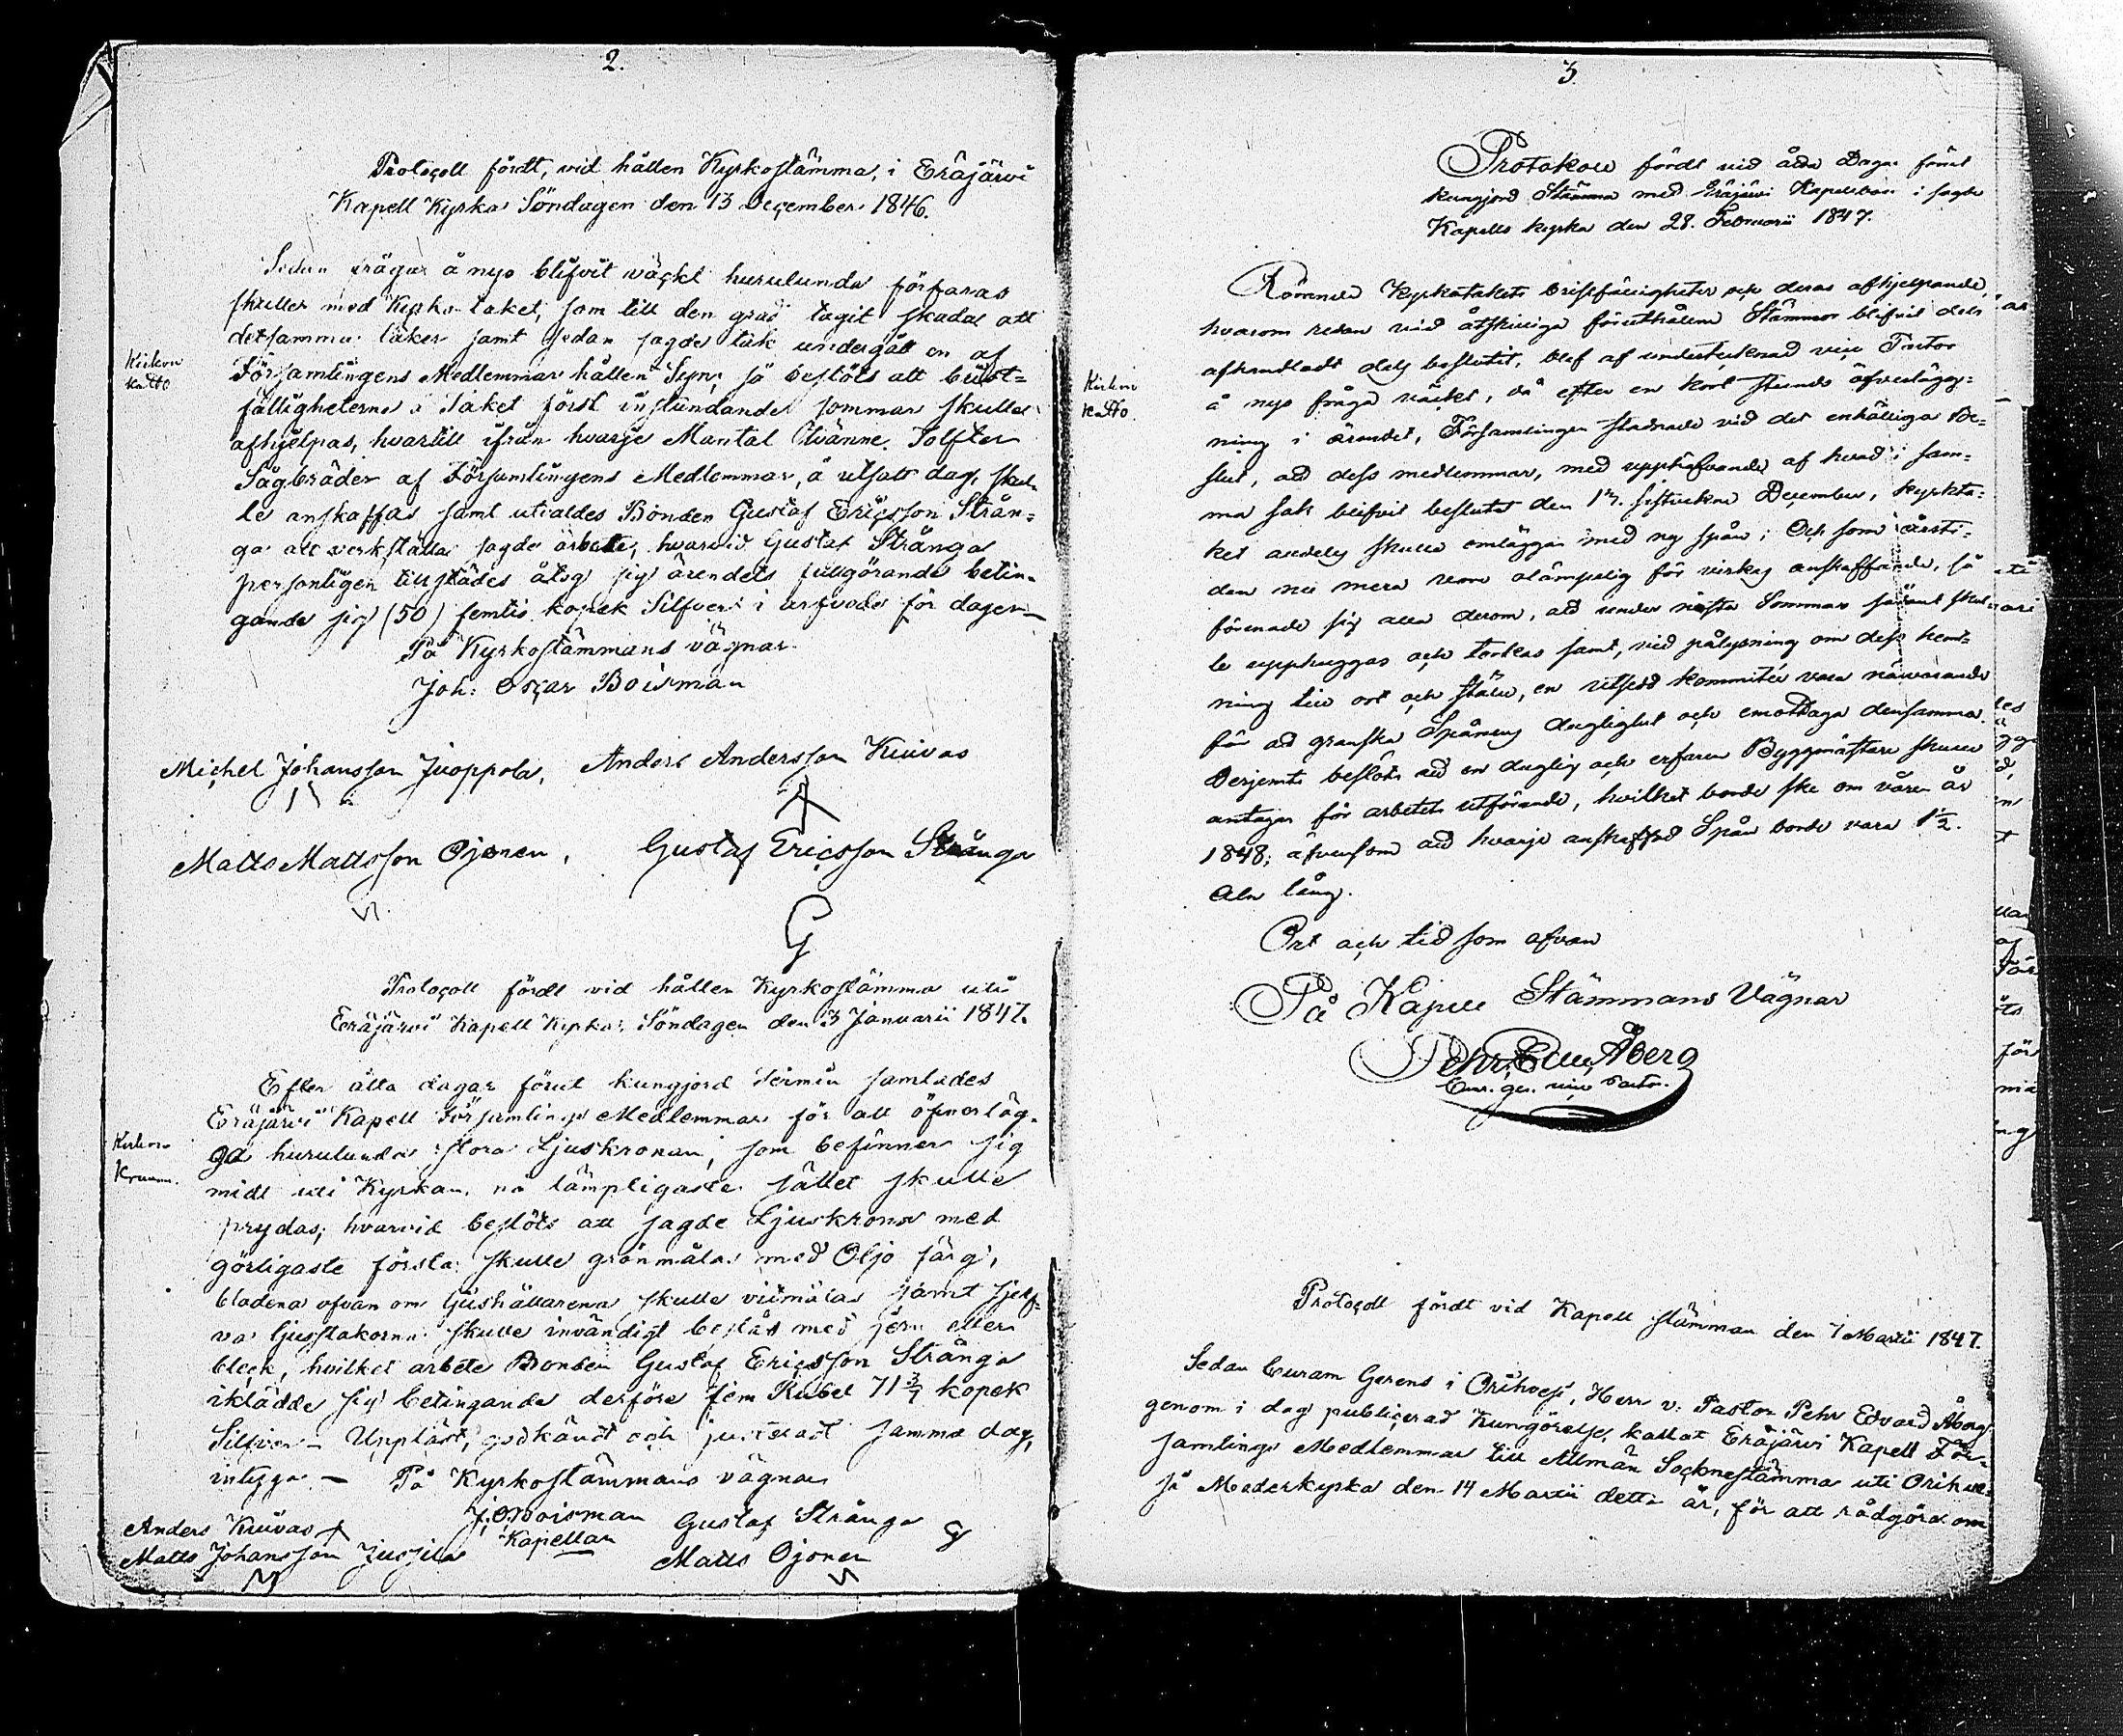 2.
Protocoll fördt, vid hållen Kyrkostämma, i Eräjärvi
Kapell Kyrka Söndagen den 13 December 1846.
Sedan frågan å nyo blifvit väckt hurulunda förfaras
skulle med Kyrko-taket, som till den grad tagit skada att
detsamma läker samt sedan sagde tak undergått en af
Kirkon
katto
Församlingens Medlemmar hållen Syn; så beslöts att bust-
fälligheterna å Taket först instundande sommar skulle
afhjelpas, hvartill ifrån hvarje Mantal tvänne Tolfter
Sågbräder af Församlingens Medlemmar, å utsatt dag, skul-
le anskaffas samt utvaldes Bonden Gustaf Ericsson Strån-
ga att verkställa sagde arbete, hvarvid Gustaf Strånga
personligen tillstädes åtog sig ärendets fullgörande betin-
gande sig (50) femtio kopek Silfver i arfvode för dagen —
På Kyrkostämmans vägnar
Joh: Oscar Boisman
Michel Johansson Juoppola, Anders Andersson Kuivas
Matts Mattsson Ojonen, Gustaf Ericsson Strånga
G
Protocoll fördt vid hållen Kyrkostämma uti
Eräjärvi Kapell Kyrka Söndagen den 3 Januarii 1847.
Efter åtta dagar förut kungjord Termin samlades
Eräjärvi Kapell Församlings Medlemmar för att öfverläg-
Kirkon
Kruunu.
ga hurulunda stora Ljuskronan, som befinner sig
midt uti Kyrkan, på lämpligaste sättet skulle
prydas; hvarvid beslöts att sagde Ljuskrona med
görligaste första skulle grönmålas med Oljo färg,
bladena ofvan om ljushållarena skulle vitmålas samt sjelf-
va ljusstakorna skulle invändigt beslås med jern eller
bleck, hvilket arbete Bonden Gustaf Ericsson Strånga
iklädde sig betingande derföre fem Rubel 71 3/7 kopek
Silfver — Uppläst, godkändt och justeradt samma dag,
intyga — På Kyrkostämmans vägnar
J.O. Boisman
Kapellan
Anders Kuivas Gustaf Strånga G
Matts Johansson Jussila Matts Ojonen
3.
Protokoll fördt vid åtta Dagar förut
kungjord Stämma med Eräjärvi Kapellboer i sagde
Kapells kyrka den 28. Februarii 1847.
Rörande Kyrkotakets bristfälligheter och deras afhjelpande,
hvarom redan vid åtskilliga föruthållna Stämmor blifvit dels
afhandladt dels beslutit, blef af undertecknad vice Pastor
Kirkon
katto.
å nyo fråga väckt, då efter en kort stunds öfverlägg-
ning i ärendet, Församlingen stadnade vid det enhälliga Be-
slut, att dess medlemmar, med upphäfvande af hvad i sam-
ma sak blifvit beslutet den 13. sistvekne December, kyrkta-
ket andels skulle omläggas med ny spån; Och som årsti-
den nu mera vore olämpelig för virkes anskaffande, så
förenade sig alla derom, att under nästa Sommar sådant skul-
le upphuggas och torkas samt, vid pålysning om dess hemt-
ning till ort och ställe, en utsedd kommitté vara närvarande
för att granska Spånens duglighet och emottaga densamma.
Derjemte beslöts att en duglig och erfaren Byggmästare skulle
antagas för arbetets utförande, hvilket borde ske om våren år
1848; äfvensom att hvarje anskaffad Spån borde vara 1½.
Aln lång.
Ort och tid som ofvan
På Kapell Stämmans Vägnar
Pehr Edv. Åberg
Cur. ger. vice Pastor.
Protocoll fördt vid Kapell stämman den 7 Martii 1847.
Sedan Curam Gerens i Orihvesi, Herr v: Pastor Pehr Edvard Åberg
genom i dag publicerad Kungörelse, kallat Eräjärvi Kapell För-
samlings Medlemmar till Allmän Socknestämma uti Orihve-
si Moderkyrka den 14 Martii detta år, för att rådgöra om